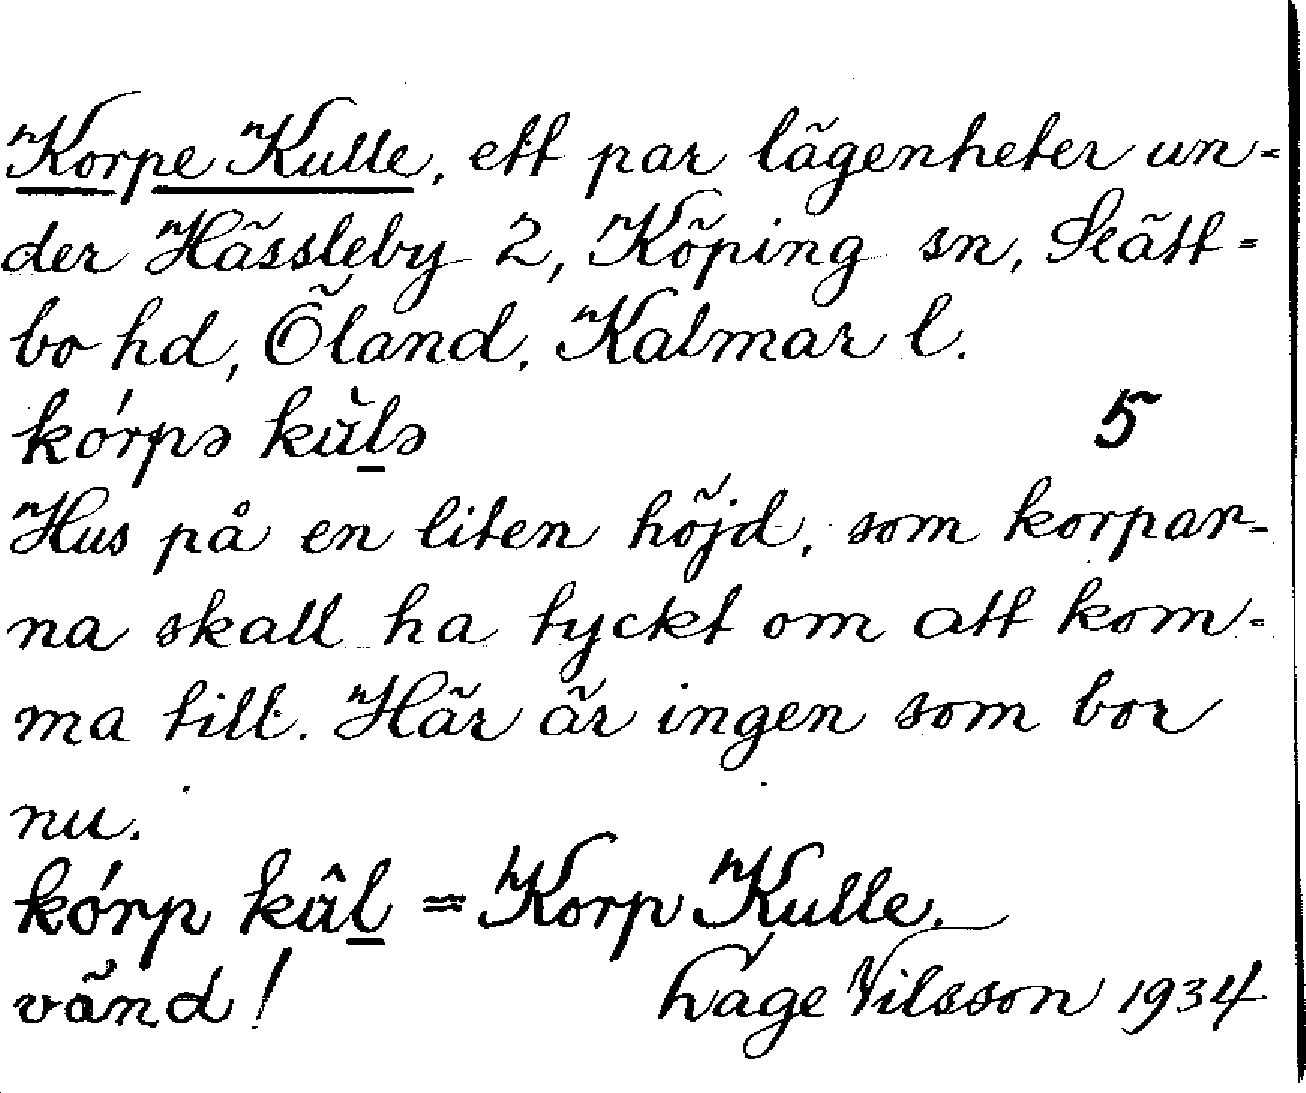 Korpe Kulle, ett par lägenheter un-
der Hässleby 2, Köping sn, Slätt-
bo hd, Öland, Kalmar l.
kórpə kùl̲ə 5
Hus på en liten höjd, som korpar-
na skall ha tyckt om att kom-
ma till. Här är ingen som bor
nu.
kórp kûl̲ = Korp Kulle.
vänd! Låge Nilsson 1934